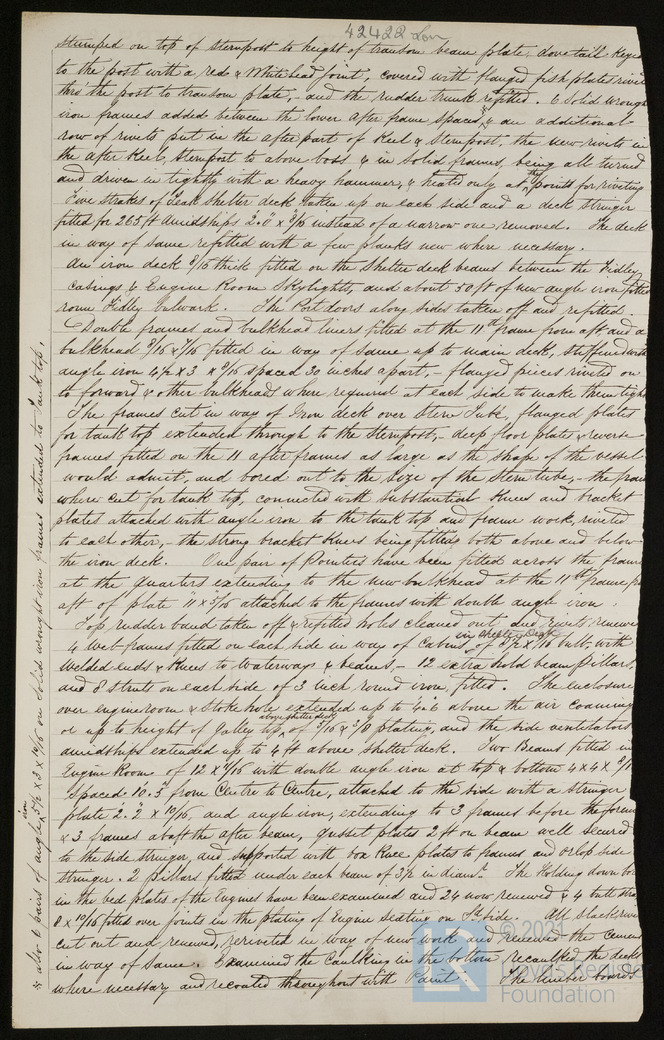 42422 Lon
stumped on top of sternpost to height of transom beam plate, dovetail keyed
to the post with a red & White head joint, covered with flanged fish plates rivet
thro' the post to transom plate,- and the rudder trunk refitted. 6 Solid wrought
iron frames added between the lower after frame spaces, & an additional
row of rivets put in the after part of Keel & Sternpost, the new rivets in
the after Keel, Sternpost to above boss & in solid frames, being all turned
and driven in tightly with a heavy hammer, & heated only at the points for riveting
Five strakes of teak shelter deck taken up on each side and a deck stringer
fitted for 265 ft amidships 2.0" x 9/16 instead of a narrow one removed. The deck
in way of same refitted with a few planks new where necessary.
An iron deck 6/16 thick fitted on the shelter deck beams between the Fidley
casings & Engine Room Skylights, and about 50 ft of new angle iron fitted
round Fidley bulwark. The Port doors along sides taken off and refitted.
Double frames and bulkhead liners fitted at the 11th frame from aft and a
bulkhead 9/16 x 7/16 fitted in way of same up to main deck, stiffened with
angle iron 4½ x 3 x 9/16 spaced 30 inches apart,- flanged pieces riveted on
to forward & other bulkheads where required at each side to make them tight
The frames cut in way of Iron deck over Stern Tube, flanged plates
for tank top extended through to the sternpost,- deep floor plates & reverse
frames fitted on the 11 after frames as large as the shape of the vessel
would admit, and bored out to the size of the stern tube,- the frames
where cut for tank top, connected with substantial Knees and bracket
plates attached with angle iron to the tank top and frame work, riveted
to each other,- the strong bracket knees being fitted both above and below
the iron deck. One pair of Pointers have been fitted across the frames
at the quarters extending to the new bulkhead at the 11th frame from
aft of plate 11 x 9/16 attached to the frames with double angle iron.
Top rudder band taken off & refitted holes cleaned out and rivets renewed
4 web frames fitted on each side in way of Cabins in shelter Deck of 8½ x 7/16 bulb with
welded ends & knees to waterways & beams,- 12 extra hold beam Pillars,
and 8 struts on each side of 3 inch round iron, fitted. The enclosure
over engine room & Stoke hole extended up to 4.6 above the air coaming
or up to height of Galley top above shelter deck of 5/16 & 3/8 plating, and the side ventilators
amidships extended up to 4 ft above shelter deck. Two Beams fitted in
Engine Room of 12 x 9/16 with double angle iron at top & bottom 4 x 4 x 9/16
spaced 10.5" from Centre to Centre, attached to the side with a stringer
plate 2.2" x 10/16 and angle iron, extending to 3 frames before the forward
& 3 frames abaft the after beam, gusset plates 2 ft on beam well secured
to the side stringer, and supported with box Knee plates to frames and orlop side
stringer. 2 pillars fitted under each beam of 3½ in diamr. The Holding down bolts
in the bed plates of the Engines have been examined and 24 now renewed & 4 butt straps
8 x 10/16 fitted over joints in the plating of Engine seating on Sd side. All slack rivets
cut out and renewed, reriveted in way of new work and renewed the cement
in way of same. Examined the Caulking in the bottom, recaulked the decks
where necessary and recoated throughout with Paint. The limber boards
& also 6 pairs of angle iron 5½ x 3 x 10/16 on solid wrought iron frames extended to Tank top,
© 2021
Lloyd's Register
Foundation